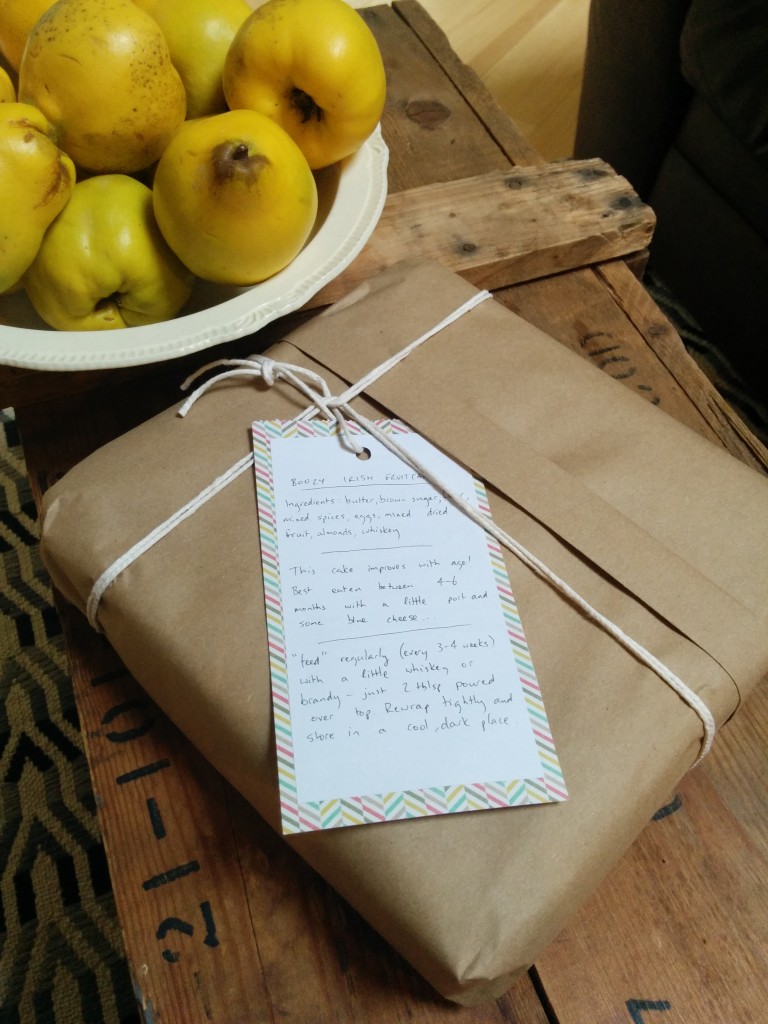 BOOZY IRISH
Ingredients: butter, brown sugar,
mixed spices, eggs, mixed dried
fruit, almonds, whiskey
This cake improves with age!
Best eaten between 4-6
months with a little port and
some blue cheese...
"feed" regularly (every 3-4 weeks)
with a little whiskey or
brandy - just 2 tblsp poured
over top. Rewrap tightly and
store in a cool, dark place